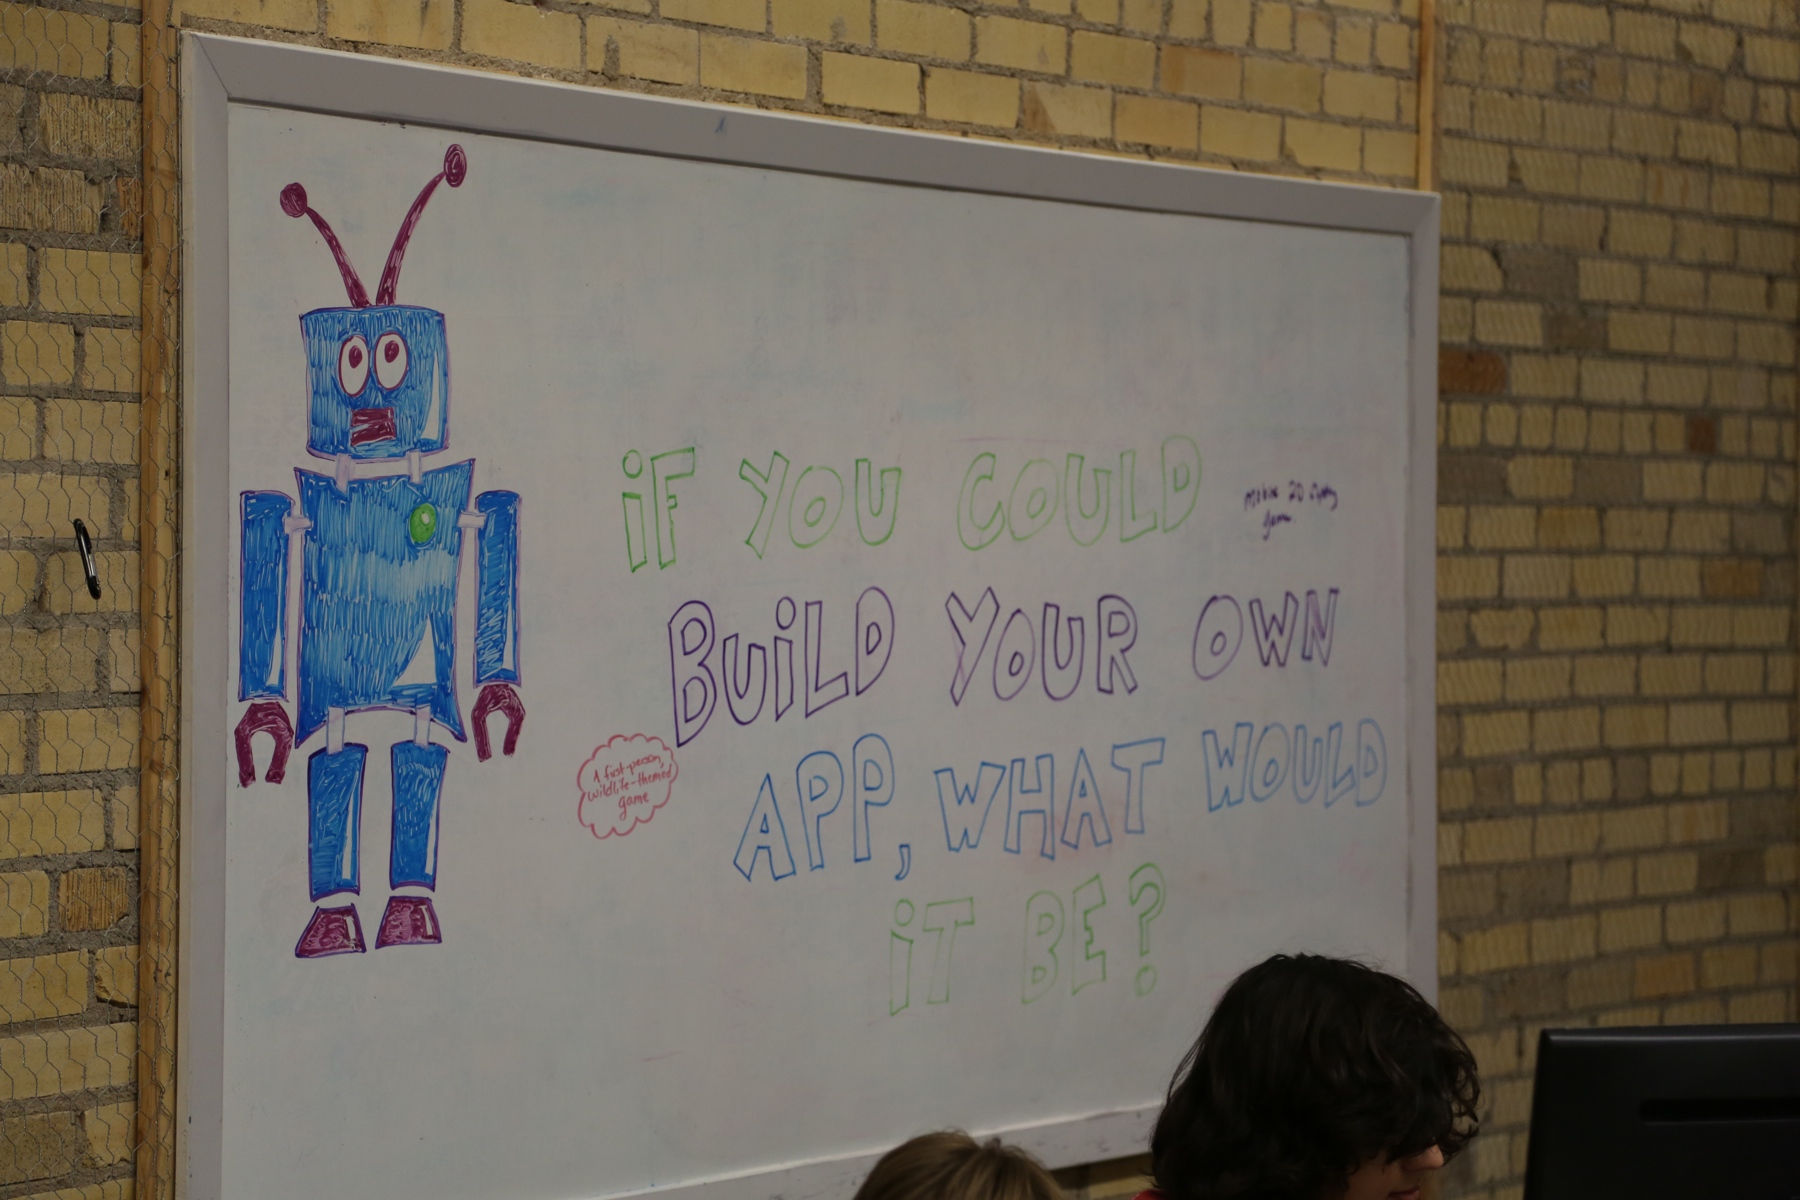 iF YOU COULD
BUiLD YOUR OWN
APP, WHAT WOULD
iT BE?
2D
game.
A first-person,
wildlife-themed
game